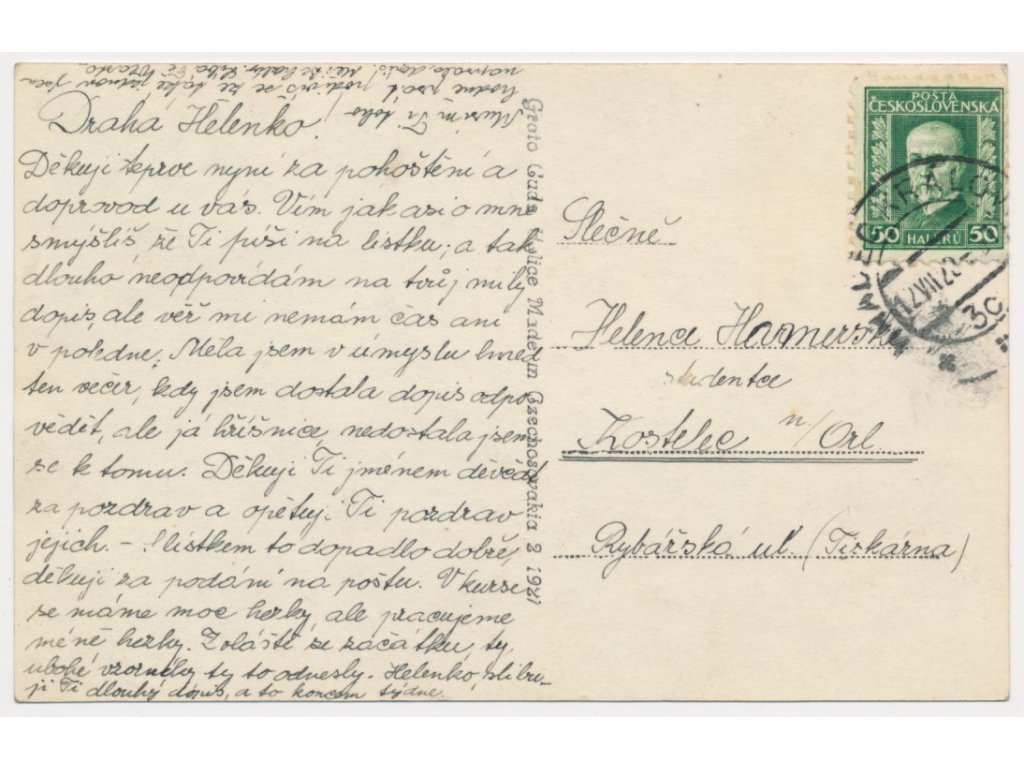 Draha Helenko!
Děkuji teprve nyní za pohoštění a
doprovod u vás. Vím jak asi o mne
smýšlíš, že Ti píši na lístku, a tak
dlouho neodpovídám na tvůj milý
dopis, ale věř mi nemám čas ani
v poledne. Měla jsem v úmyslu hned
ten večer, kdy jsem dostala dopis odpo
vědět, ale já hříšnice, nedostala jsem
se k tomu. Děkuji Ti jménem děvčat
za pozdrav a opětuji Ti pozdrav
jejich. – S lístkem to dopadlo dobře,
děkuji za podání na poštu. V kurse
se máme moc hezky, ale pracujeme
méně hezky. Zvláště ze začátku, ty
ubohé vzorníky ty to odnesly. Helenko, slibu-
ji Ti dlouhý dopis, a to koncem týdne.
Musím Ti toho
hodně psát, podivíš se, že také jednou jsem
napsala dopis!
Grafo Čuda Holice Made in Czechoslovakia 2 1927
POŠTA
ČESKOSLOVENSKÁ
50 HALÉŘŮ 50
HRADEC KRÁLOV
12.VII.28
3c
Slečně
Helena
studentce
Kostelec n/Orl
Rybářská ul. (Tiskárna)